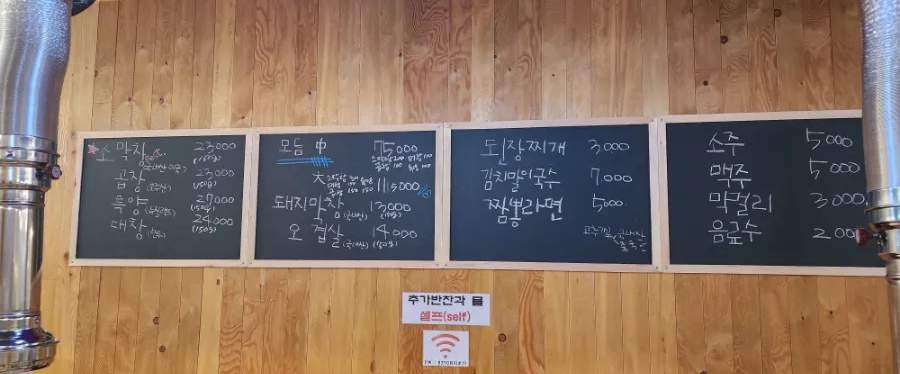 소 막창 23000
(150g)
곱창 23000
(150g)
특양 27000
(뉴질랜드) (150g)
대창 24000
(150g)
모듬 中 75000
大 115000
돼지막창 13000
(국내산)
오겹살 14000
(국내산) (150g)
된장찌개 3000
김치말이국수 7,000
짬뽕라면 5000
소주 5000
맥주 5000
막걸리 3000
음료수 2000
추가반찬과 물
셀프(self)